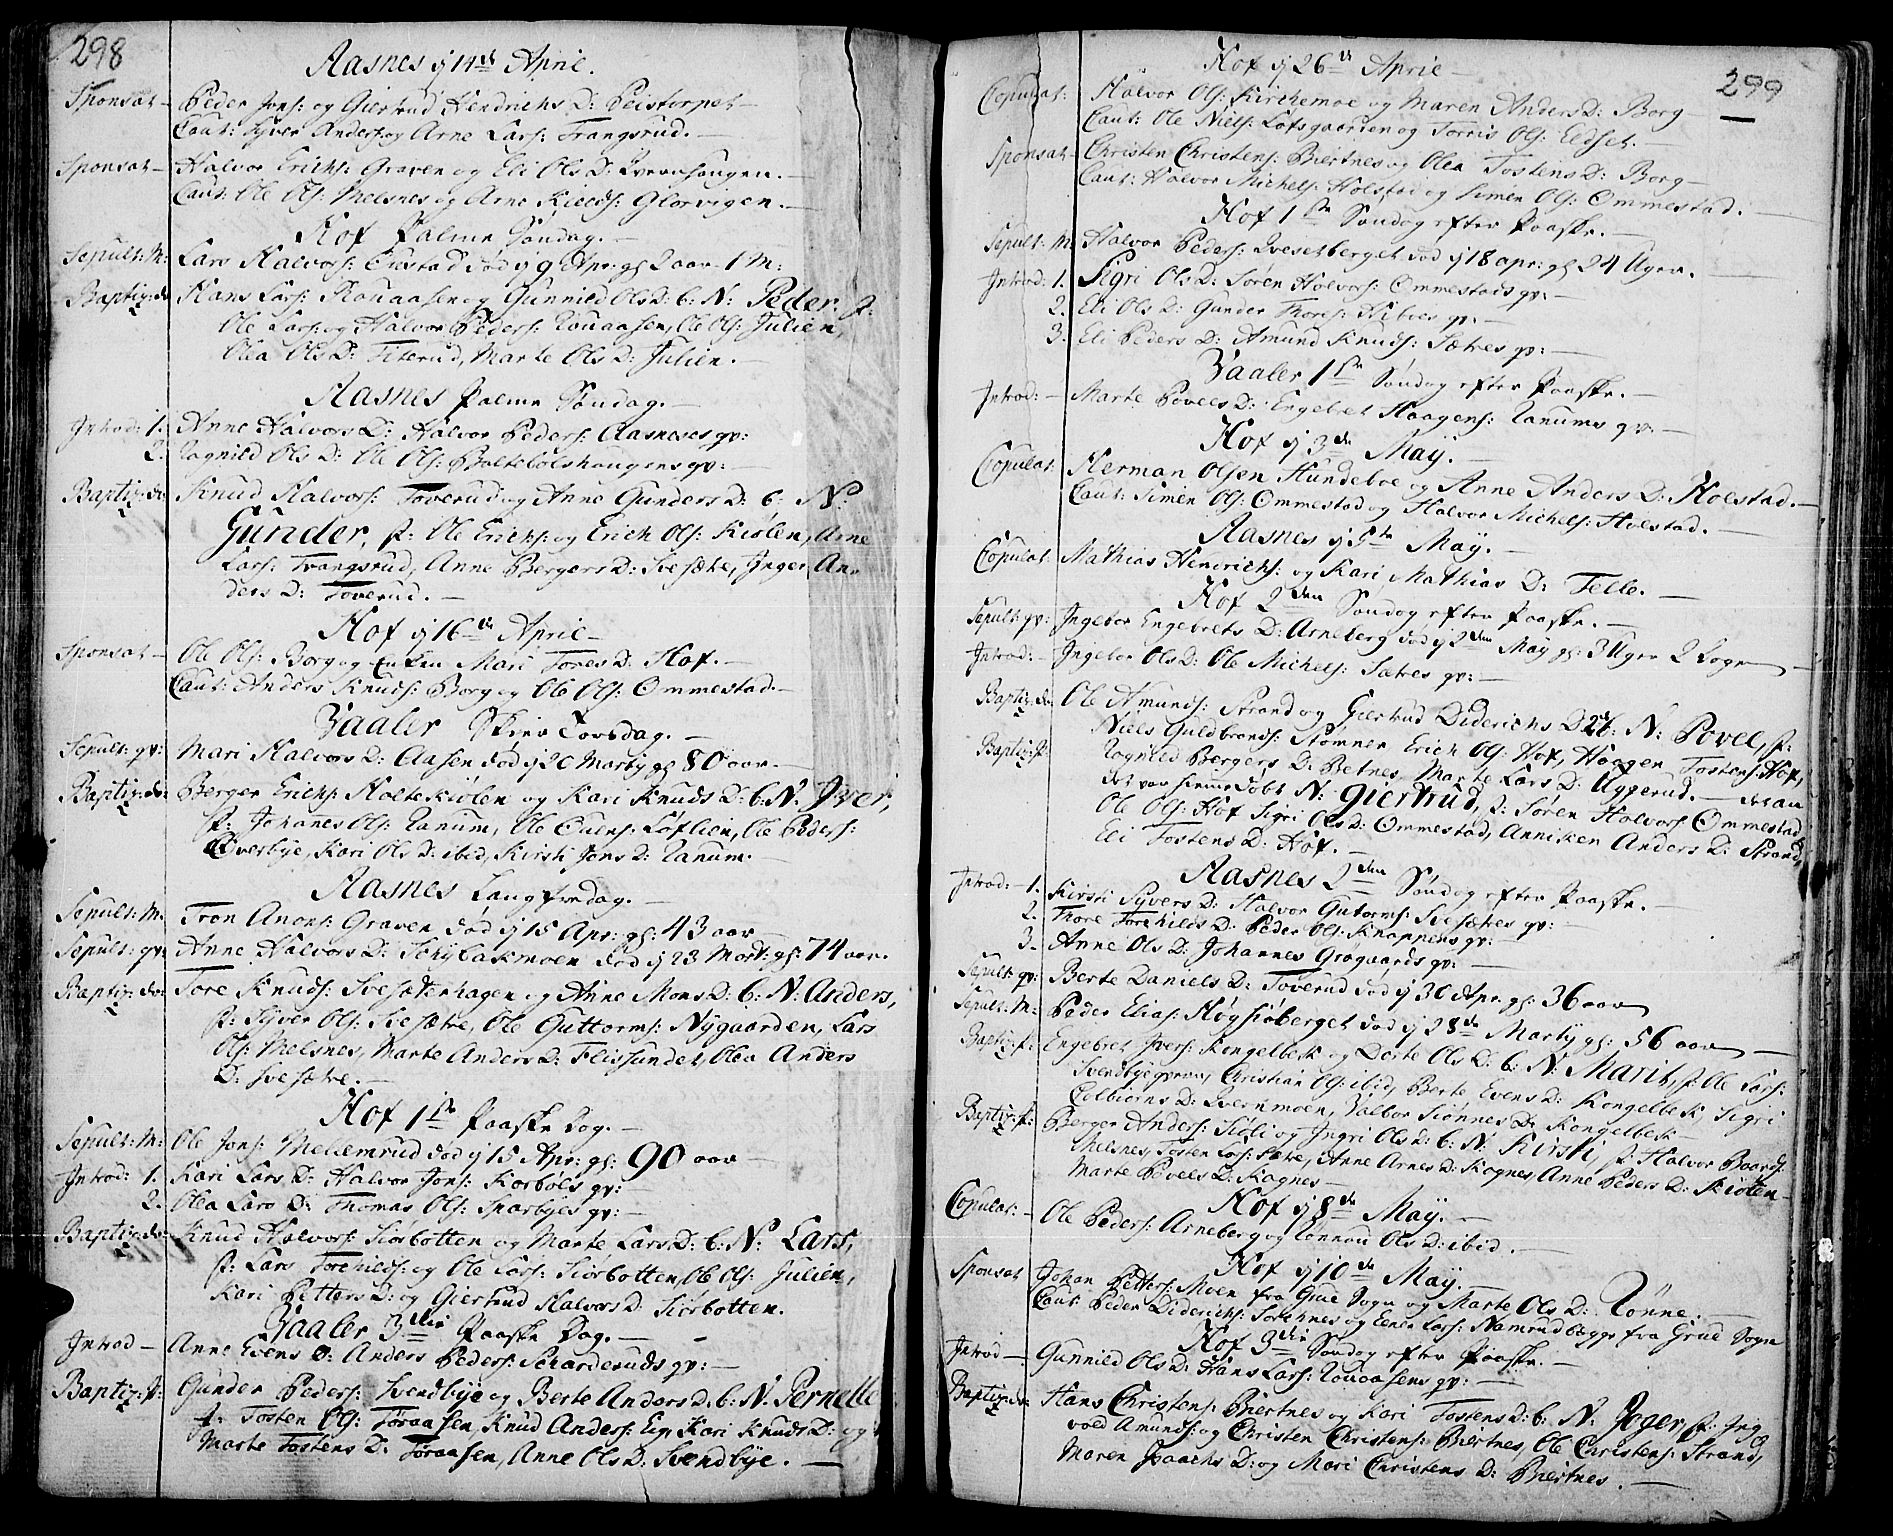 298
Aasnes ÿ 14de April.
Sponsat – Peder Jons: og Giertrud Hendrichs D: Peistorpet –
Caut: Syver Anders: og Arne Lars: Trangsrud. –
Sponsat – Halvor Erichs: Graven og Eli Ols D: Qvernhougen. –
Caut: Ole Ols: Melsnes og Arne Kields: Glorvigen. –
Hof Palme Søndag. –
Sepult: M: Lars Halvors: Enstad død ÿ 9 Apr: gl 2 aar 1 M:
Baptiz: do: Hans Lars: Rouaasen og Gunnild Ols D: b: N: Peder. f:
Ole Lars: og Halvor Peders: Rouaasen, Ole Ols: Julien,
Olea Ols D: Titerud, Marte Ols D: Julien. –
Aasnes Palme Søndag. –
Introd: 1. Anne Halvors D: Halvor Peders: Aasneses qv:
2. Ragnild Ols D: Ole Ols: Boltebølshaugens qv: –
Baptiz: do: Knud Halvors: Toverud og Anne Gunders D: b: N:
Gunder, f: Ole Erichs: og Erich Ols: Kiølen, Arne
Lars: Trangsrud, Anne Bergers D: Svesætre, Inger An-
ders D: Toverud. –
Hof ÿ 16de April –
Sponsat – Ole Ols: Borg og Enken Mari Tores D: Hof. –
Caut: Anders Knuds: Borg og Ole Ols: Ommestad. –
Vaaler Skier Torsdag. –
Sepult: qv: Mari Halvors D: Aasen død ÿ 20 Martÿ gl 80 aar –
Baptiz: do: Berger Erichs: Holtekiølen og Kari Knuds D: b: N: Iver,
f: Johanes Ols: Ranum, Ole Ouens: Løflien, Ole Peders:
Overbye, Kari Ols D: ibid, Kirsti Jons D: Ranum. –
Aasnes Langfredag. –
Sepult: M: Tron Anons: Graven død ÿ 15 Apr: gl: 43 aar –
Sepult: qv: Anne Halvors D: Schybakmoen død ÿ 23 Mart: gl: 74 aar.
Baptiz: do: Tore Knuds: Svesæterhagen og Anne Mons D: b: N: Anders,
f: Syver Ols: Svesætre, Ole Guttorms: Nygaarden, Lars
Ols: Melsnes, Marte Anders D: Flissundet, Olea Anders
D: Svesætre. –
Hof 1ste Paaske Dag. –
Sepult: M: Ole Jons: Mellemrud død ÿ 15 Apr: gl: 90 aar –
Introd: 1. Kari Lars D: Halvor Jons: Korbøls qv:
2. Olea Lars D: Thomas Ols: Sparbyes qv: –
Baptiz: do: Knud Halvors: Siørbotten og Marte Lars D: b: N: Lars,
f: Lars Torchilds: og Ole Lars: Siørbotten, Ole Ols: Julien,
Kari Petters D: og Giertrud Halvors D: Siørbotten.
Vaaler 3die Paaske Dag. –
Introd – Anne Evens D: Anders Peders: Scharderuds qv: –
Baptiz: f: Gunder Peders: Svendbye og Berte Anders D: b: N: Pernelle
f: Tosten Ols: Toraasen, Knud Anders: Eig Kari Knuds D: og
Marte Tostens D: Toraasen, Anne Ols D: Svendbye. –
299
Hof ÿ 26de April –
Copulat: Halvor Ols: Kirchemoe og Maren Anders D: Borg –
Caut: Ole Niels: Lotsgaarden og Torris Ols: Eidset. –
Sponsat – Christen Christens: Biertnes og Olea Tostens D: Borg –
Caut: Halvor Michels: Holstad og Simen Ols: Ommestad. –
Hof 1ste Søndag efter Paaske. –
Sepult: M: Halvor Peders: Qvesetberget død ÿ 18 apr: gl 24 Uger. –
Introd: 1. Sigri Ols D: Søren Halvors: Ommestads qv: –
2. Eli Ols D: Gunder Thores: qv: –
3. Eli Peders D: Amund Knuds: Sætres qv: –
Vaaler 1ste Søndag efter Paaske. –
Introd: – Marte Povels D: Engebret Haagens: Ranums qv: –
Hof ÿ 3de Maÿ. –
Copulat: Herman Olsen Hundeboe og Anne Anders D: Holstad. –
Caut: Simen Ols: Ommestad og Halvor Michels: Holstad. –
Aasnes ÿ 5te Maÿ. –
Copulat: Mathias Hendrichs: og Kari Mathias D: Telle. –
Hof 2den Søndag efter Paaske. –
Sepult: qv: Ingebor Engebrets D: Arneberg død ÿ 2den Maÿ gl: 3 Uger 2 Dage
Introd: – Ingebor Ols D: Ole Michels: Sætres qv: –
Baptiz: do: Ole Amunds: Strand og Giertrud Diderichs D: 2 b: N: Povel, f:
Niels Guldbrands: Stømner Erich Ols: Hof, Haagen Tostens: Hof,
Baptiz: f: Ragnild Bergers D: Betnes, Marte Lars D: Uggerud. – det an
det var hiemme døbt N: Giertrud, f: Søren Halvors: Ommestad
Ole Ols: Hof Sigri Ols D: Ommestad, Anniken Anders D: Strand,
Eli Tostens D: Hof. –
Aasnes 2den Søndag efter Paaske. –
Introd: – 1. Kirsti Syvers D: Halvor Gutorms: Svesætres qv: –
2. Thore Torchilds D: Peder Ols: Knappens qv: –
3. Anne Ols D: Johannes Grøgaards qv: –
Sepult: qv: Berte Daniels D: Toverud død ÿ 30 Apr: gl: 36 aar
Sepult: M: Peder Elias: Høgsiøberget død ÿ 28de Martÿ gl: 56 aar –
Baptiz: f: Engebret Ivers: Kongelbek og Dorte Ols D: b: N: Marit, f: Ole Lars:
Svendbyeqvern, Christian Ols: ibid, Berte Evens D: Kongelbek Sigri
Colbiørns D: Qvernmoen, Valbor Siønnes D: Kongelbek –
Baptiz: f: Berger Anders: Kiøli og Ingri Ols D: b: N: Kirsti, f: Halvor Baards:
Melsnes, Tosten Lars: Sætre, Anne Arnes D: Kognes, Anne Peders D: Kiølen
Marte Povels D: Kagnes –
Hof ÿ 8de Maÿ. –
Copulat: – Ole Peders: Arneberg og Rønnou Ols D: ibid. –
Hof ÿ 10de Maÿ. –
Sponsat Johan Petters: Moen fra Grue Sogn og Marte Ols D: Rønne.
Caut: Peder Diderichs: Sorknes og Even Lars: Namrud begge fra Grue Sogn
Hof 3die Søndag efter Paaske. –
Introd – Gunnild Ols D: Hans Lars: Rouaasens qv: –
Baptiz: do: Hans Christens: Biertnes og Kari Tostens D: b: N: Joger, f: Ing
vold Amunds: og Christen Christens: Biertnes, Ole Christens: Strand,
Maren Isaachs D: og Mari Christens D: Biertnes. –